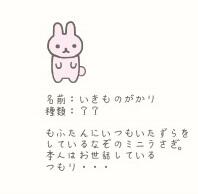 名前：いきものがかり
種類：？？
もふたんにいつもいたずらを
しているなぞのミニうさぎ。
本人はお世話している
つもり・・・